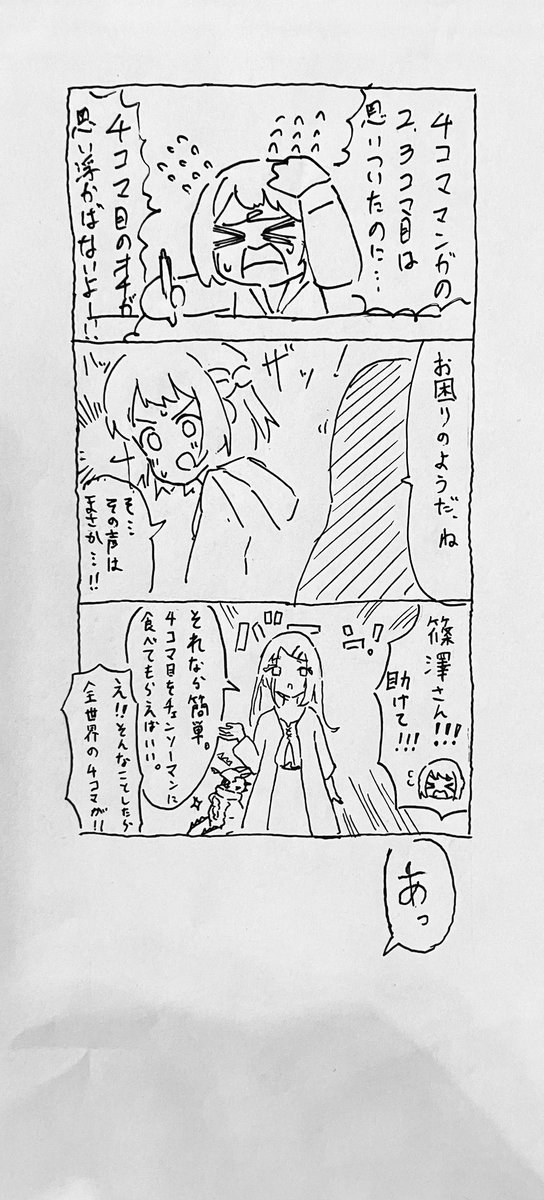 4コママンガの
2,3コマ目は
思いついたのに…
4コマ目のオチが
思い浮かばないよー!!
お困りのようだ、ね
ザッ
そ…
その声は
まさか…!!
篠澤さん!!!
助けて!!!
バ
ーン。
それなら簡単。
4コマ目をチェンソーマンに
食べてもらえばいい。
え!!そんなことしたら
全世界の4コマが!!
あっ